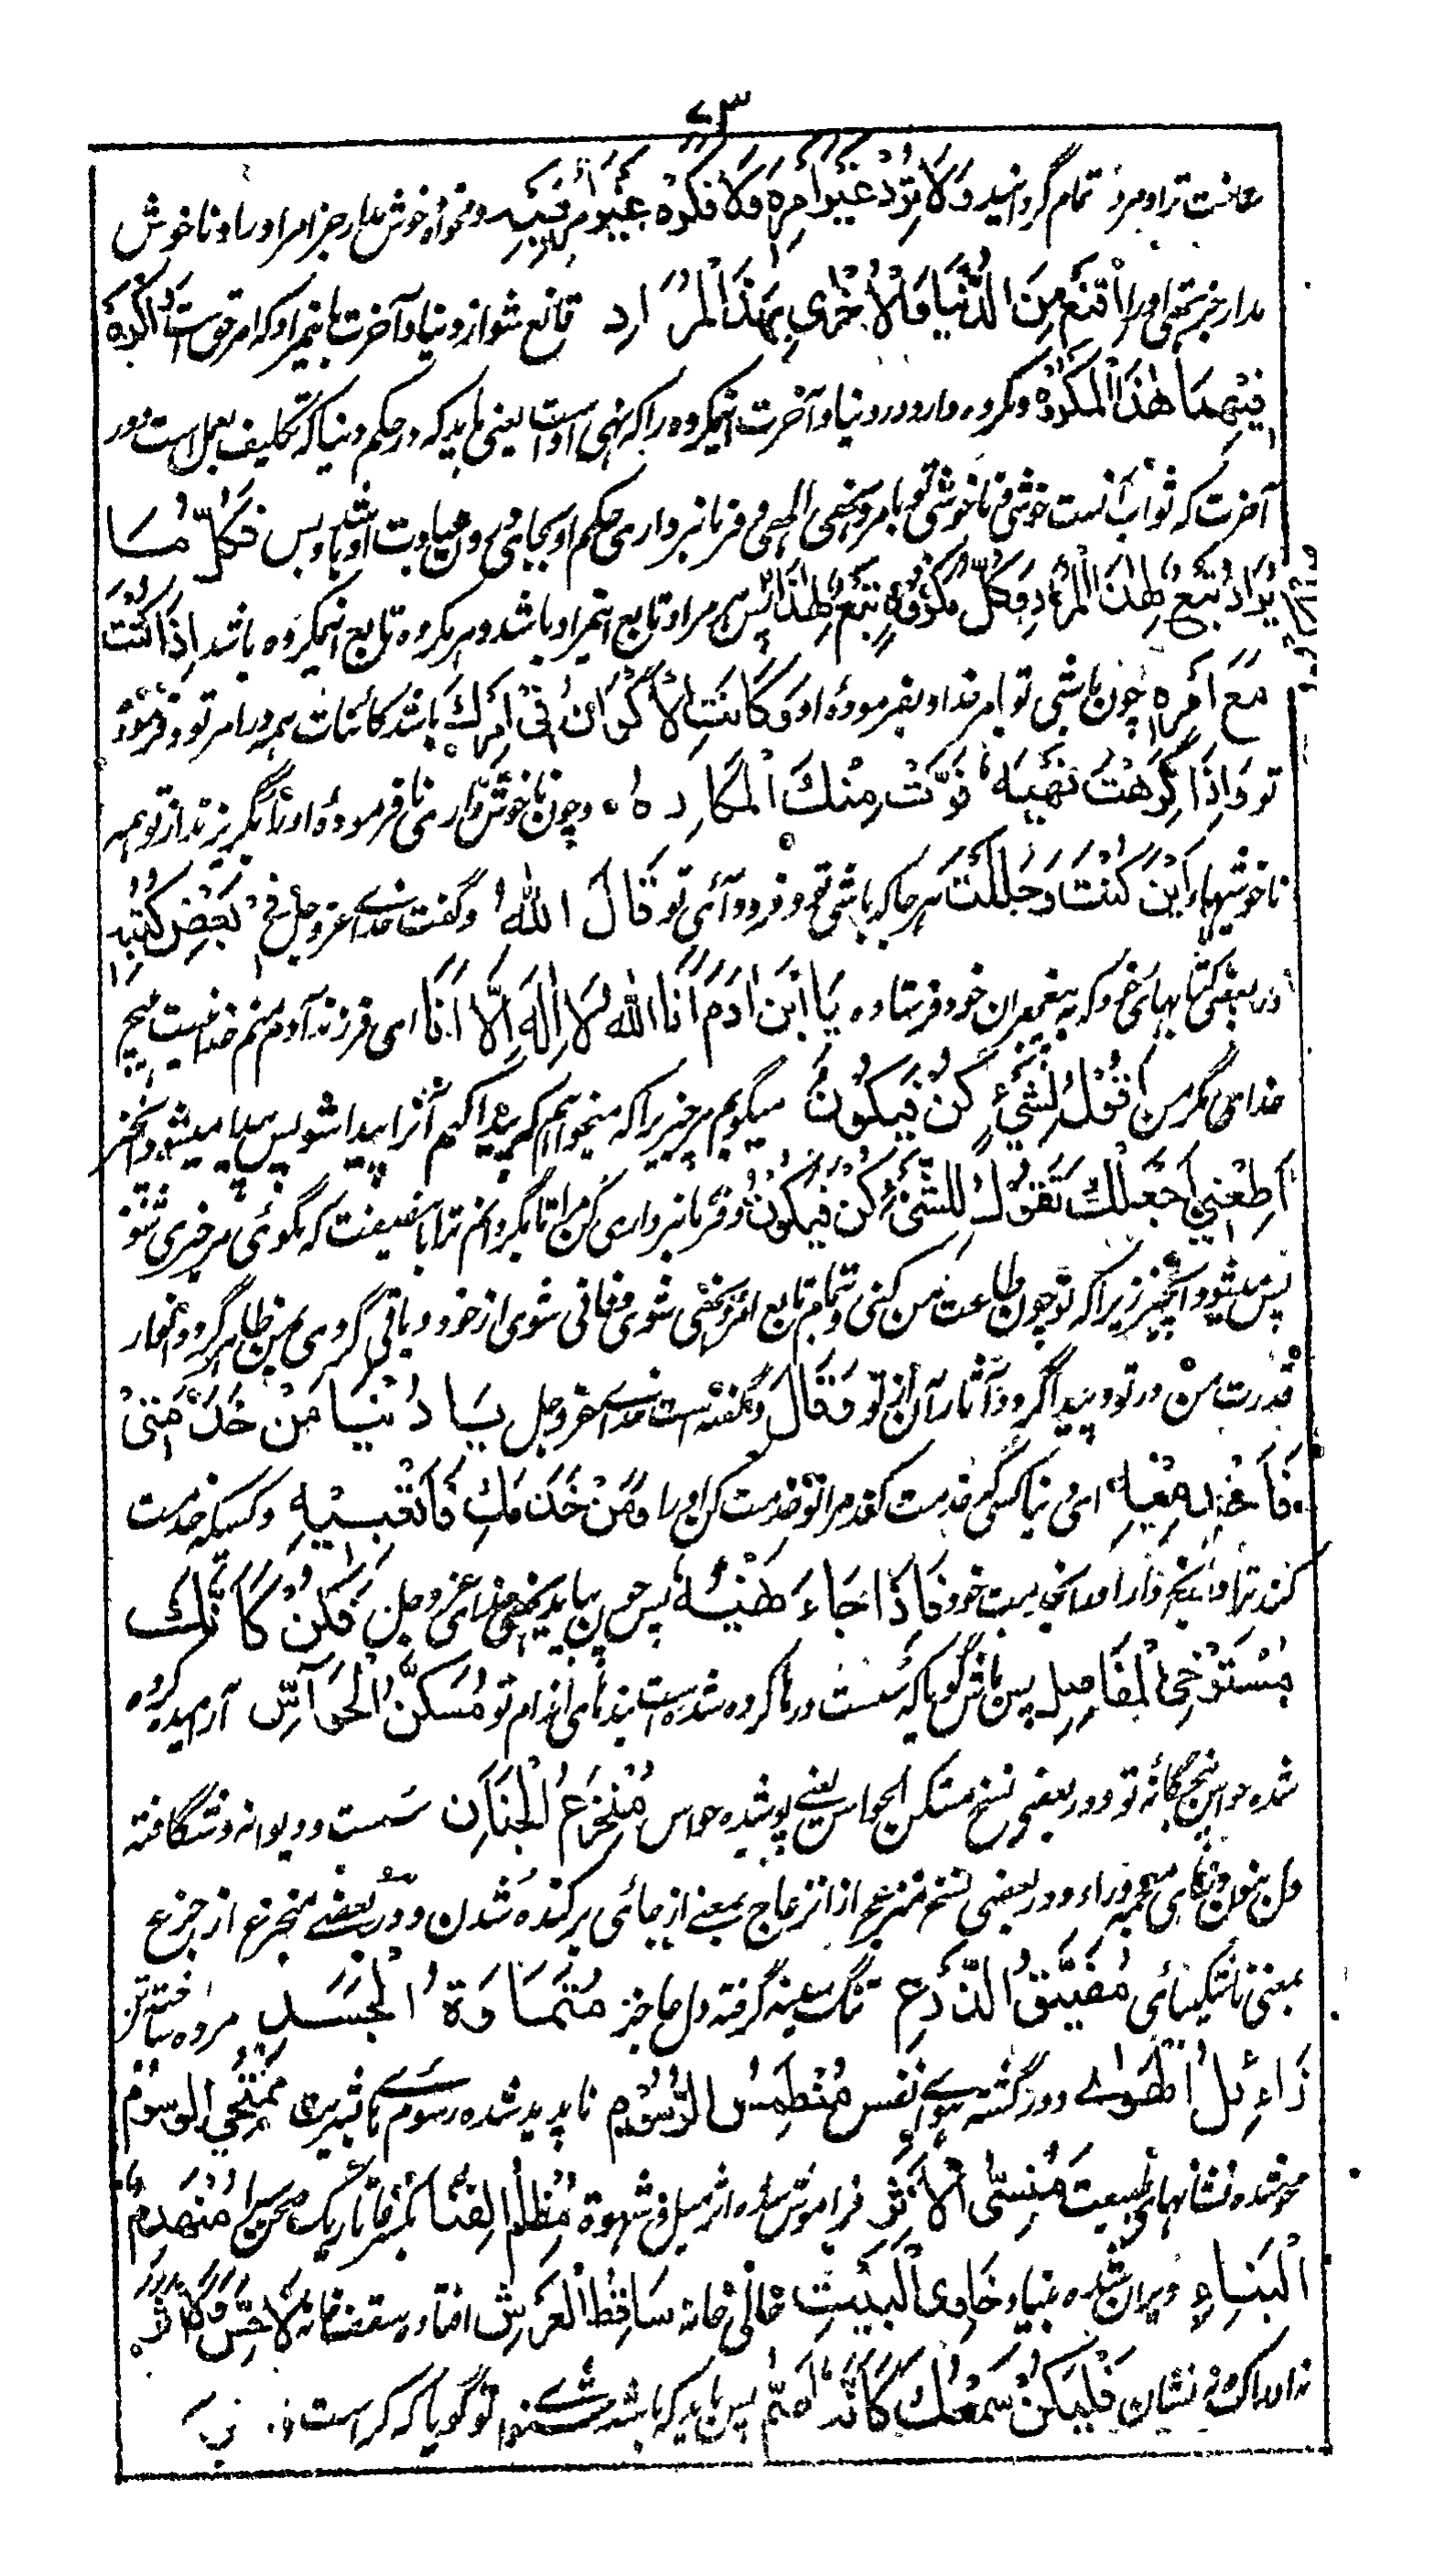 ۷۳
عافیت ترا و مرد تمام گردانید وَلَا تُرِدْ غَيْرَ أَمْرِهٖ وَلَا تَكْرَهْ غَيْرَ نَهْيِهٖ و مخواه و خوش مدار جز امر او را و ناخوش
مدار جز نهی او را اِقْنَعْ مِنَ الدُّنْيَا وَالْأُخْرٰی بِهٰذَا الْمُرَادِ قانع شو از دنیا و آخرت باین مراد که امر حق است وَاكْرَهْ
فِيْهِمَا هٰذَا الْمَكْرُوْهَ و مکروه دار در دنیا و آخرت این مکروه را که نهی اوست یعنی باید که در حکم دنیا که تکلیف بعمل است و در
آخرت که ثواب آنست خوشی و ناخوشی تو بامر و نهی الهی و فرمانبرداری حکم او بجا آوری و عبادت او باشد و بس فَكُلُّ مَا
يُرَادُ تَبَعٌ لِهٰذَا الْمُرَادِ وَكُلُّ مَكْرُوْهٍ تَبَعٌ لِهٰذَا پس هر مراد تابع این مراد باشد و هر مکروه تابع این مکروه باشد اِذَا كُنْتَ
مَعَ أَمْرِهٖ چون باشی تو با امر خدا و بفرموده او وَكَانَتِ الْأَكْوَانُ فِيْ أَمْرِكَ باشد کائنات همه در امر تو و فرموده
تو وَاِذَا كَرِهْتَ نَهْيَهٗ فَرَّتْ مِنْكَ الْمَكَارِهُ و چون ناخوش داری نافرموده او را بگریزند از تو همه
ناخوشیها أَيْنَ كُنْتَ وَحَلَلْتَ هر جا که باشی تو و فرود آئی تو قَالَ اللهُ و گفت خدای عز و جل فِيْ بَعْضِ كُتُبِهٖ
در بعضی کتابهای خود که به پیغمبران خود فرستاده يَا ابْنَ اٰدَمَ أَنَا اللهُ لَا اِلٰهَ اِلَّا أَنَا ای فرزند آدم منم خدا نیست هیچ
خدای مگر من أَقُوْلُ لِشَيْءٍ كُنْ فَيَكُوْنُ میگویم هر چیز را که میخواهم که پیدا کنم آنرا پیدا شو پس پیدا میشود آنچیز
أَطِعْنِيْ أَجْعَلْكَ تَقُوْلُ لِلشَّيْءِ كُنْ فَيَكُوْنُ و فرمانبرداری کن مرا تا بگردانم ترا باین صفت که بگوئی هر چیزی را شو
پس میشود آنچیز زیرا که تو چون طاعت من کنی و تمام تابع امر و نهی شوی و فانی شوی از خود و باقی گردی بمن ظاهر گردد انوار
قدرت من در تو و پیدا گردد آثار آن از تو وَقَالَ و گفته است خدای عز و جل يَا دُنْيَا مَنْ خَدَمَنِيْ
فَاخْدِمِيْهِ ای دنیا کسی که خدمت کند مرا تو خدمت کن او را وَمَنْ خَدَمَكِ فَأَتْعِبِيْهِ و کسیکه خدمت
کند ترا در رنج دار او را خود فَاِذَا جَاءَ نَهْيُهٗ پس چون بیاید نهی خدای عز و جل فَكُنْ كَأَنَّكَ
مُسْتَرْخِی الْمَفَاصِلِ پس باش گویا که سست و رها کرده شده است بندهای اندام تو مُسَكَّنُ الْحَوَاسِّ آرمیده کرده
شده حواس پنجگانه تو و در بعضی نسخ مستکن الحواس یعنی پوشیده حواس مُنْخَزِعُ الْجَنَانِ سست و دیوانه و شگافته
دل بنون و زای معجمه و راء و در بعضی نسخ منزعج از انزعاج بمعنی از جائی برکنده شدن و در بعضی منجزع از جزع
بمعنی ناشکیبائی مُضَيَّقُ الذَّرْعِ تنگ سینه گرفته دل عاجز مُتَمَاوِتُ الْجَسَدِ مرده ساخته تن
زَائِلُ الْهَوٰى دور گشته هوای نفس مُنْطَمِسُ الرُّسُوْمِ ناپدید شده رسوم بشریت مُمْتَحِی الْوُسُوْمِ
محو شده نشانهای طبیعت مُنْسَی الْأَثَرِ فراموش شده اثر میل و شهوة مُظْلِمُ الْفِنَاءِ بکسر فا تاریک صحن سرا مُنْهَدِمُ
الْبِنَاءِ ویران شده بنیاد خَاوِی الْبَيْتِ خالی خانه سَاقِطُ الْعَرْشِ افتاده سقف خانه لَا حِسَّ وَلَا أَثَرَ
نه ادراک و نه نشان فَلْيَكُنْ سَمْعُكَ كَأَنَّهٗ أَصَمُّ پس باید که باشد شنوا تو گویا که کر است